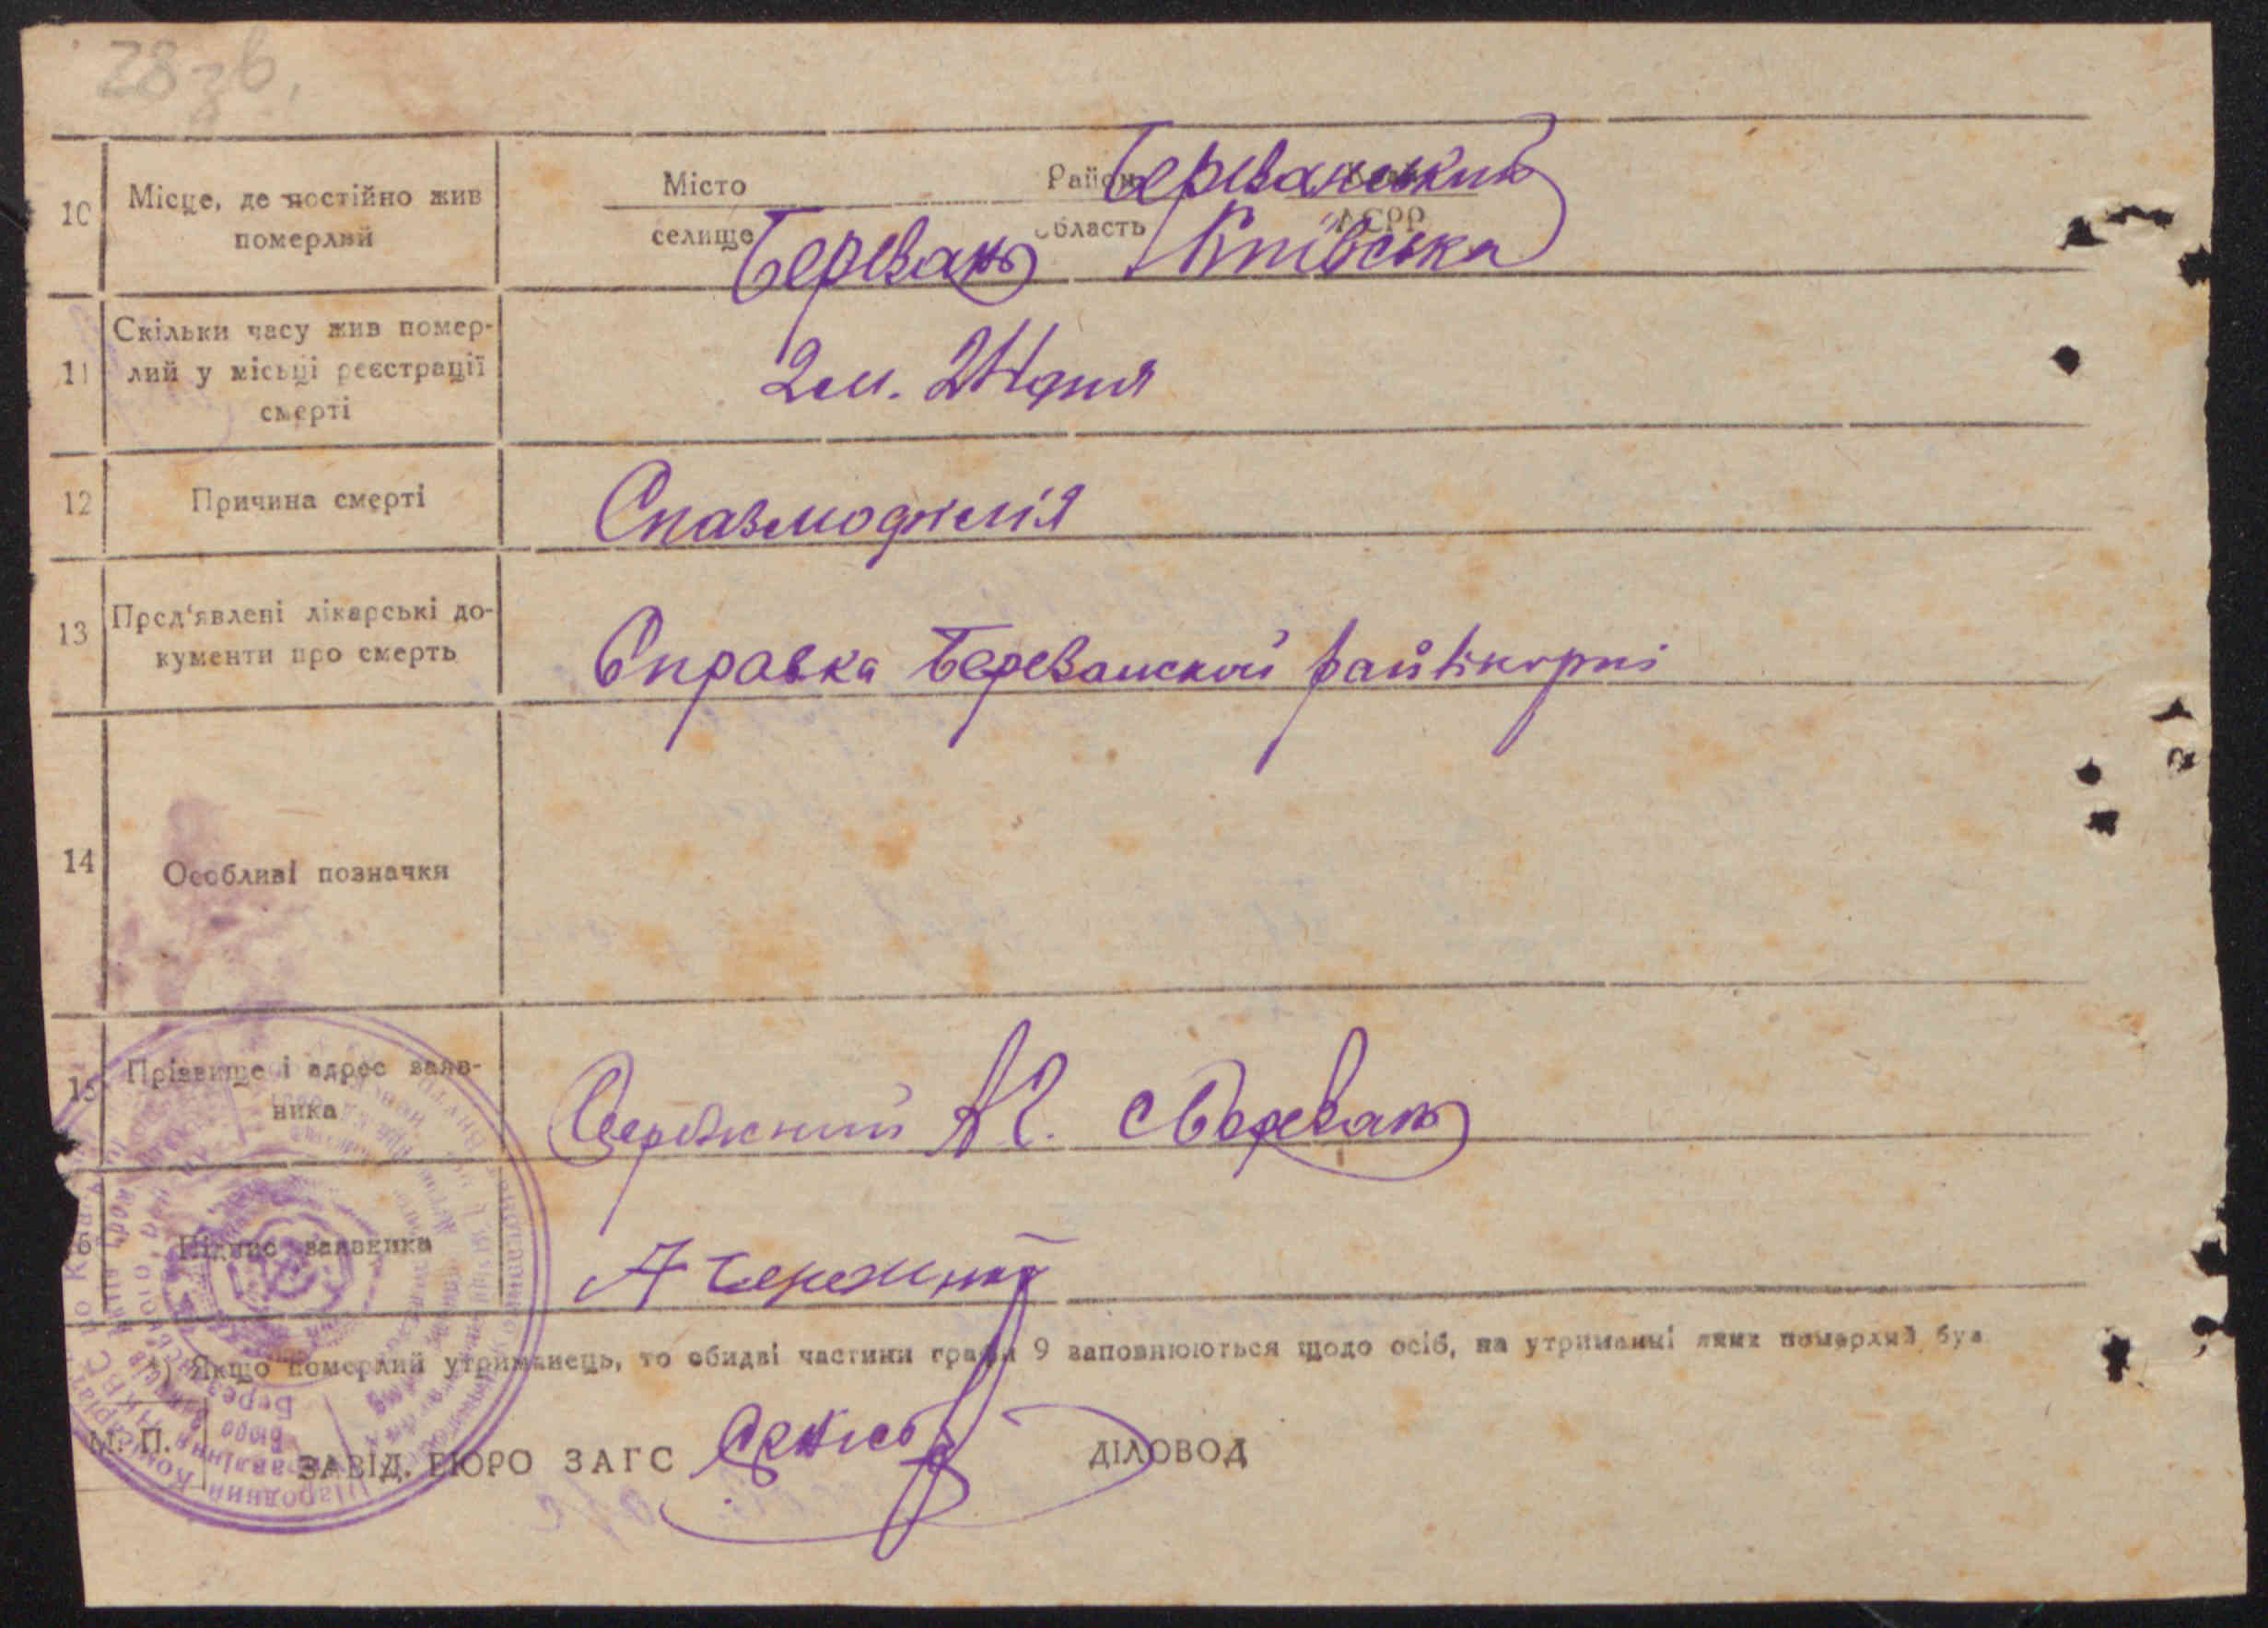 28 зв.
10 Місце, де постійно жив померлий
Місто
селище Березань
Район Березанський
область Київська
АСРР
11 Скільки часу жив помер-
лий у місьці реєстрації
смерті
2 м. 24 дня
12 Причина смерті
Спазмофилія
13 Пред'явлені лікарські до-
кументи про смерть
Справка Березанской райлікарні
14 Особливі позначки
15 Прізвище і адрес заяв-
ника
А С. с Березань
16 Підпис заявника
А
*) Якщо померлий утриманець, то обидві частини графи 9 заповнюються щодо осіб, на утриманні яких померлий був
М. П.
ЗАВІД. БЮРО ЗАГС
ДІЛОВОД